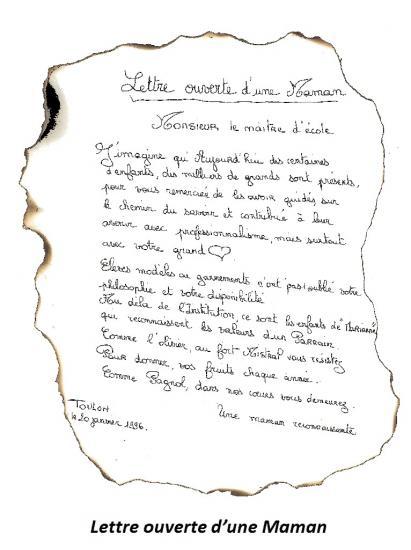 Lettre ouverte d'une Maman
Monsieur le maître d'école
J'imagine qu'Aujourd'hui des certaines
d'enfants, des milliers de grands sont présents,
pour vous remerciée de les avoir guidés sur
le chemin du savoir et contribué à leur
avenir avec professionnalisme, mais surtout
avec votre grand ♡
Elèves modèles au garnements n'ont pas oublié votre
philosophie et votre disponibilité
Au délà de l'Institution, ce sont les enfants de "Marianne"
qui reconnaissent les valeurs d'un Parrain.
Comme l'olivier, au fort Mistral vous résistez
Pour donner, vos fruits chaque année.
Comme Pagnol, dans nos cœurs vous demeurez.
Une maman reconnaissante
Toulon
le 20 janvier 1996.
Lettre ouverte d'une Maman